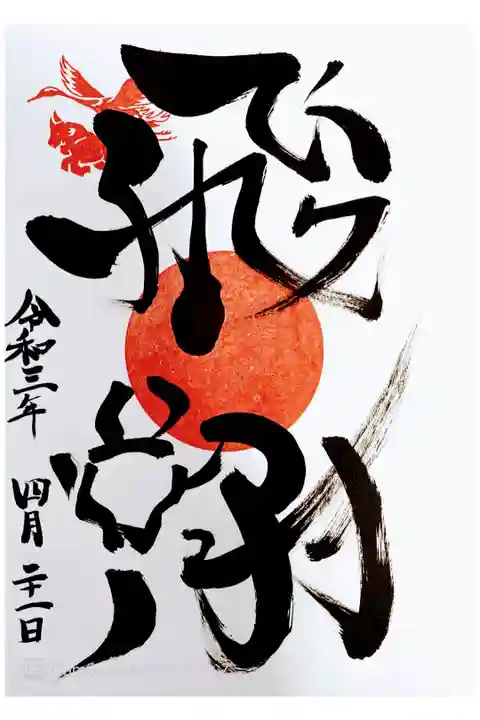 飛翔
令和三年 四月二十一日